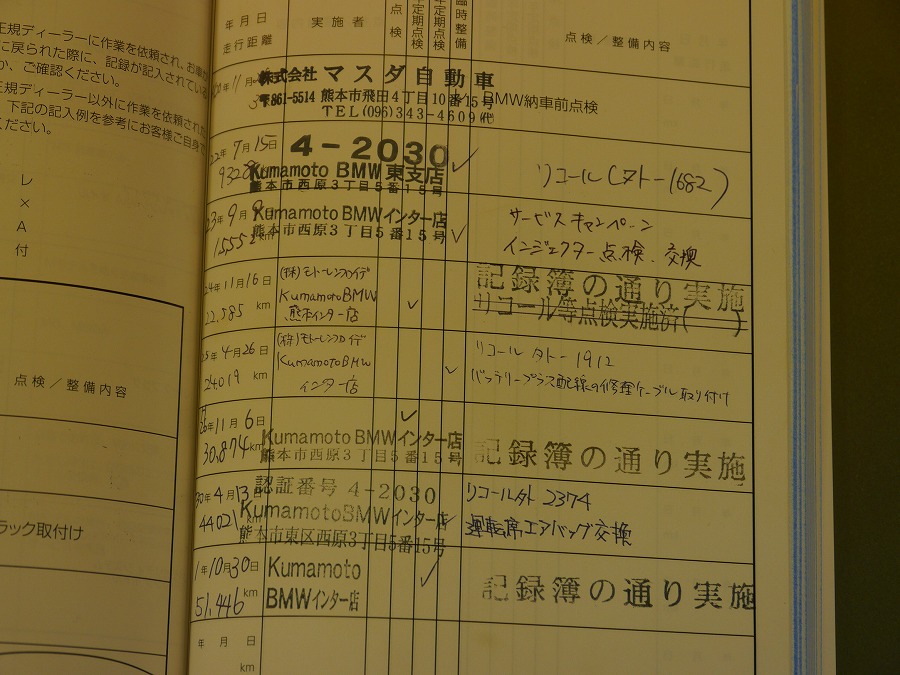 正規ディーラーに作業を依頼され、お車が
に戻られた際に、記録が記入されている
か、ご確認ください。
正規ディーラー以外に作業を依頼された
、下記の記入例を参考にお客様ご自身で
ください。
レ
×
A
付
点検／整備内容
ラック取付け
年月日
走行距離
実施者
点検
定期点検
定期点検
臨時整備
点検／整備内容
年11月
株式会社マスダ自動車
〒861-5514 熊本市飛田4丁目10番15号
TEL(096)343-4609㈹
BMW納車前点検
22年7月15日
4-2030
Kumamoto BMW 東支店
熊本市西原3丁目5番15号
リコール(外-1682)
23年9月9日
15552km
Kumamoto BMWインター店
熊本市西原3丁目5番15号
サービスキャンペーン
インジェクター点検、交換
24年11月16日
22,585 km
(株)モトーレン
KumamotoBMW
熊本インター店
記録簿の通り実施
リコール等点検実施済( )
25年4月26日
24019 km
(株)モトーレン
KumamotoBMW
インター店
リコール 外-1912
バッテリープラス配線の修理ケーブル取り付け
26年11月6日
30,874km
Kumamoto BMWインター店
熊本市西原3丁目5番15号
記録簿の通り実施
30年4月13日
44021km
認証番号 4-2030
KumamotoBMWインター店
熊本市東区西原3丁目5番15号
リコール外 2374
運転席エアバッグ交換
1年10月30日
51,446km
Kumamoto
BMWインター店
記録簿の通り実施
年 月 日
km